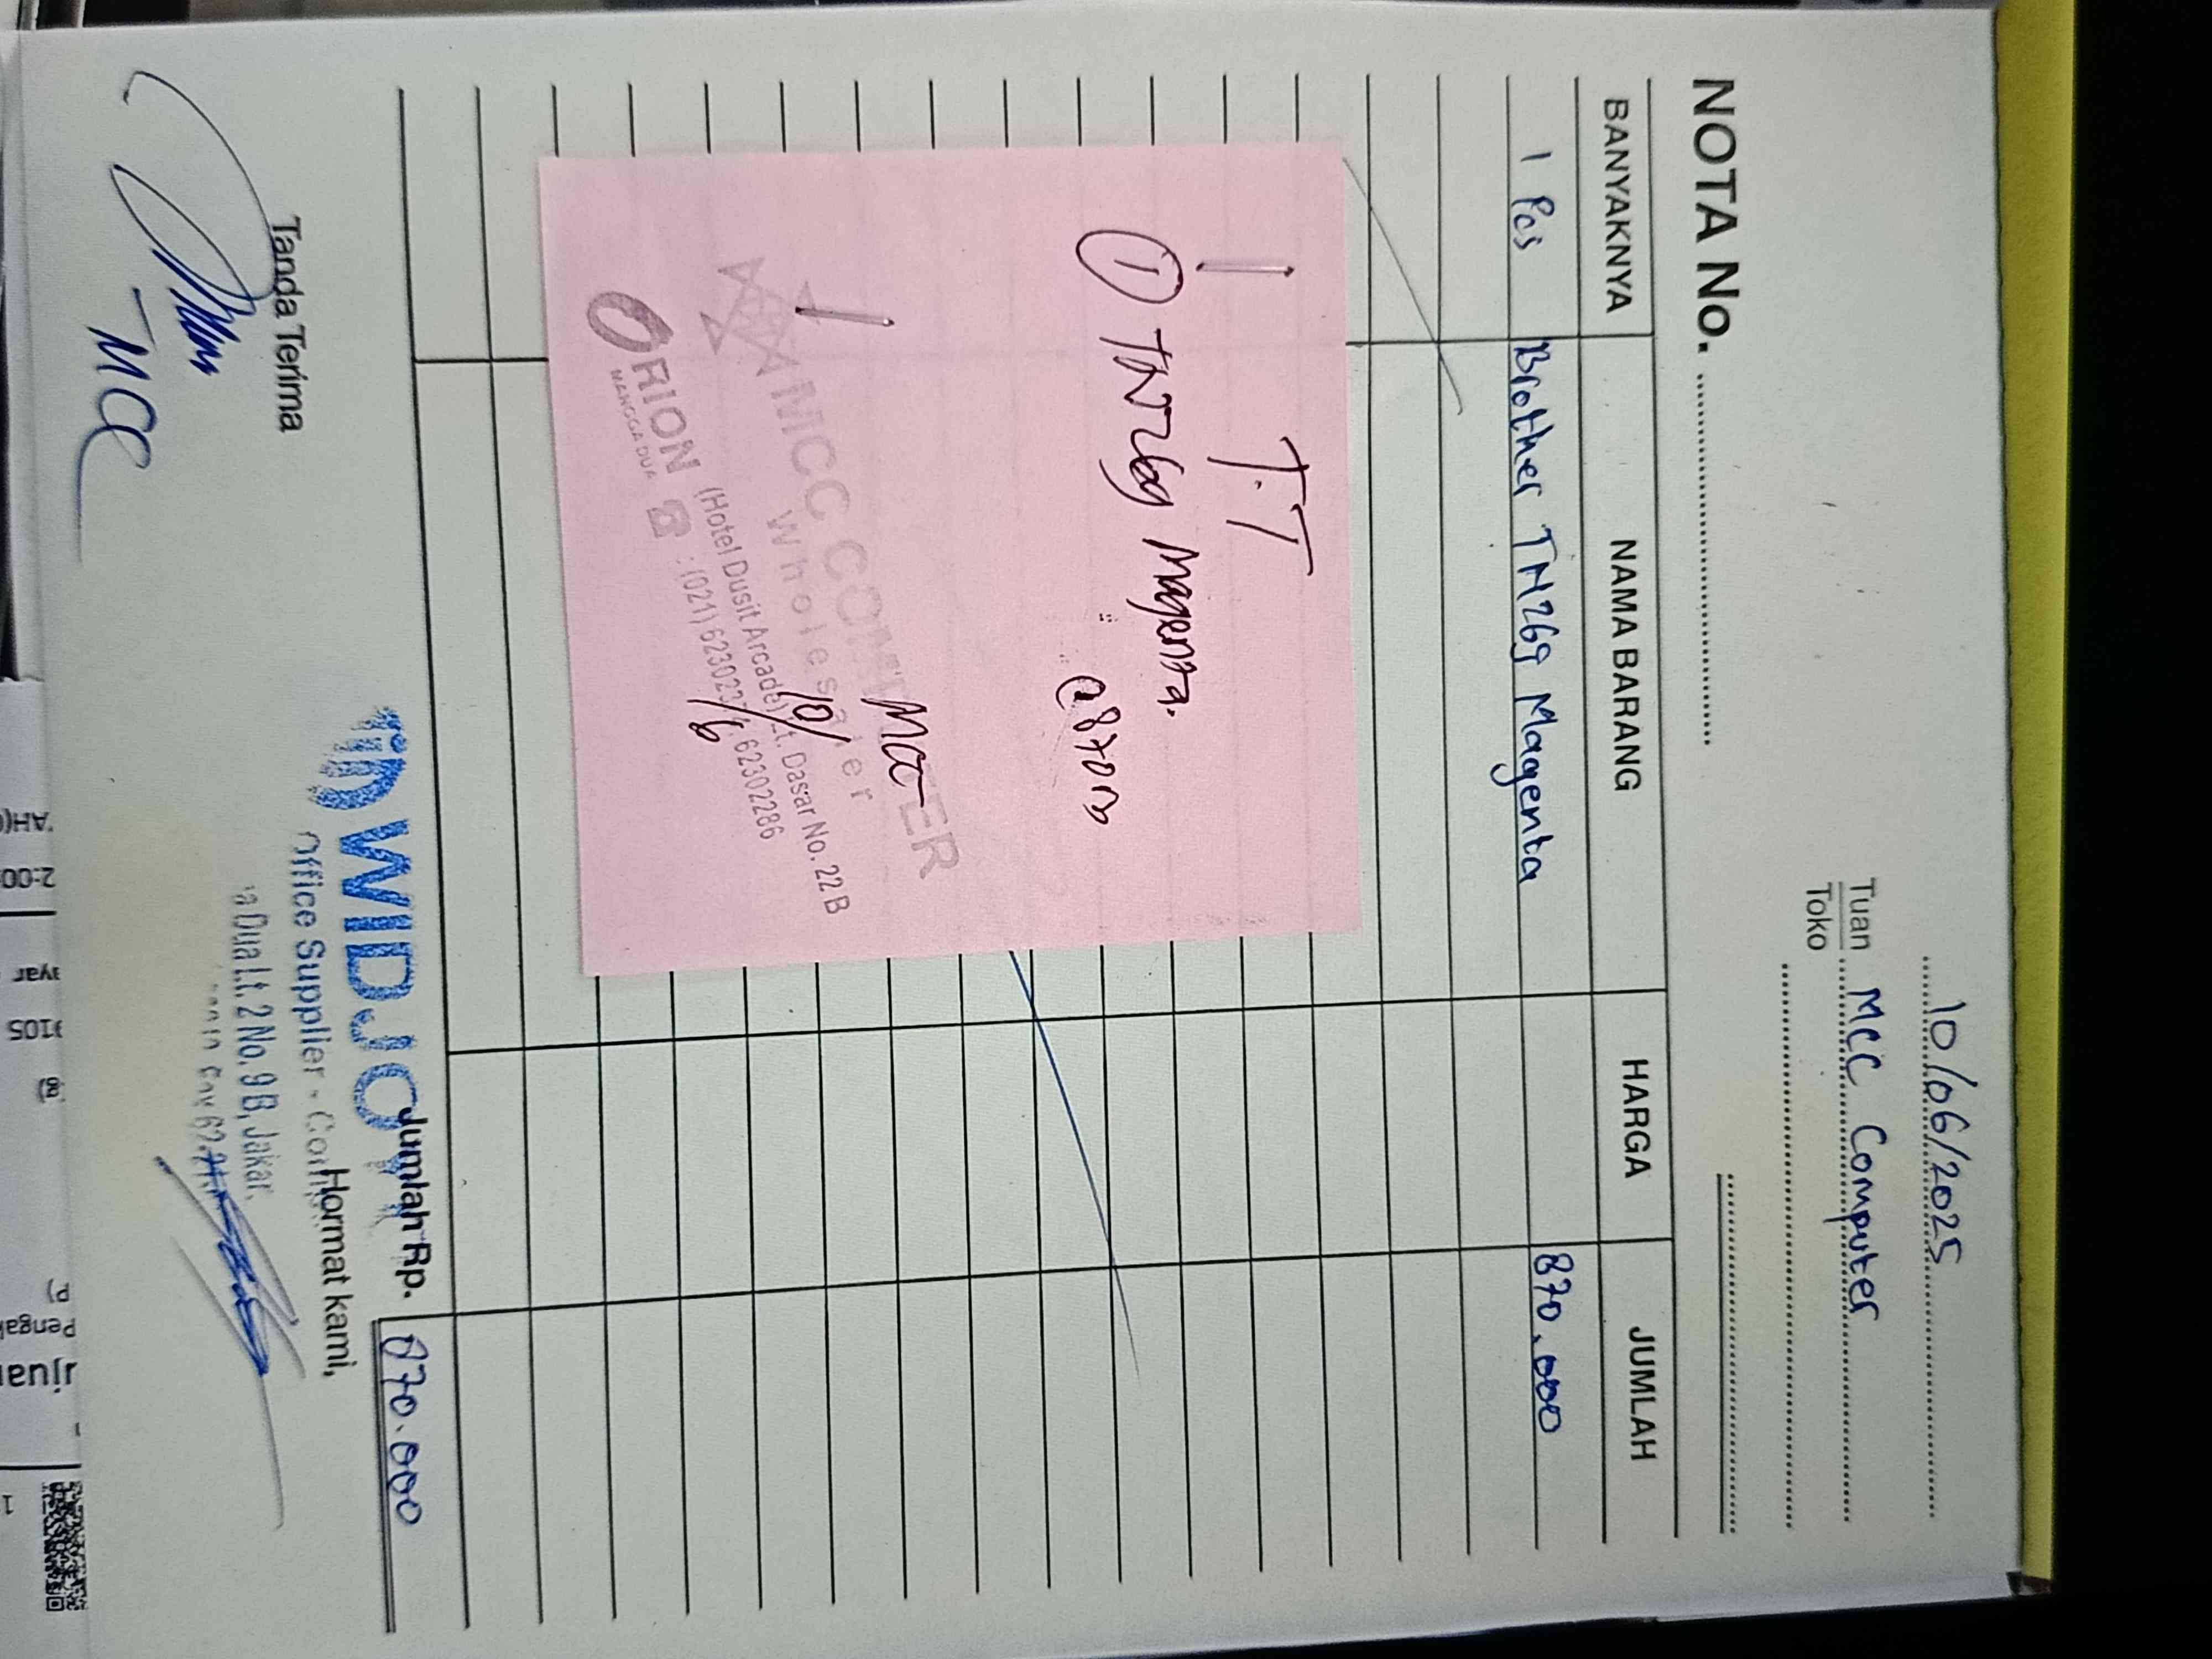 10/06/2025
Tuan MCC Computer
Toko
NOTA No.
BANYAKNYA NAMA BARANG HARGA JUMLAH
1 Pcs Brother TN269 Magenta 870.000
T.T
① TN269 Magenta.
@870rb
MCC
10/6
MCC COMPUTER
Wholesaler
(Hotel Dusit Arcade) Lt. Dasar No. 22 B
ORION ☎ : (021) 6230237, 62302286
MANGGA DUA
Jumlah Rp. 870.000
Tanda Terima
Hormat kami,
WIDJOY
Office Supplier -
a Dua Lt. 2 No. 9 B, Jakar
MCC
2:00
ayar
9105
Penga